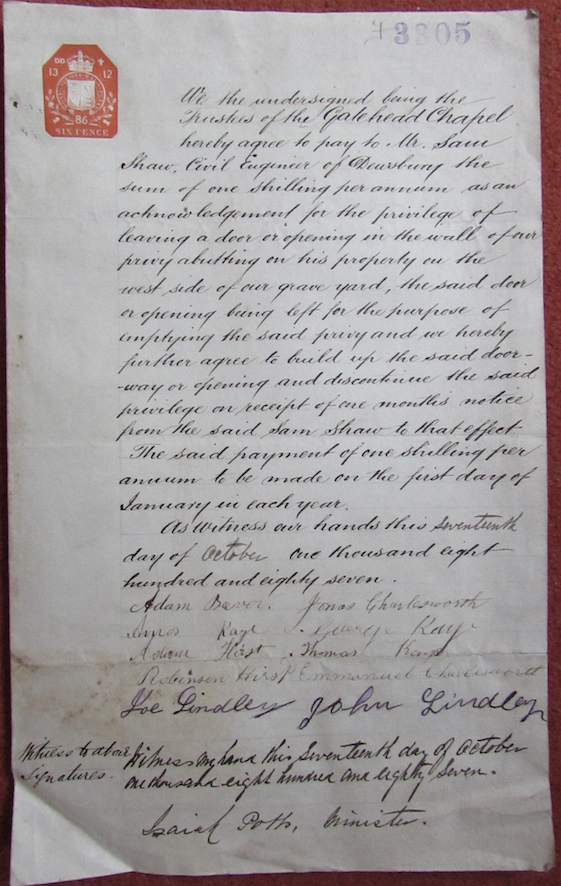 3305
DD
13 12
86
SIX PENCE
We the undersigned being the
Trustees of the Gatehead Chapel
hereby agree to pay to Mr. Sam
Shaw, Civil Engineer of Dewsbury the
sum of one shilling per annum as an
acknowledgement for the privilege of
leaving a door or opening in the wall of our
privy abutting on his property on the
west side of our grave yard, the said door
or opening being left for the purpose of
emptying the said privy and we hereby
further agree to build up the said door-
-way or opening and discontinue the said
privilege on receipt of one months notice
from the said Sam Shaw to that effect
The said payment of one shilling per
annum to be made on the first day of
January in each year.
As Witness our hands this Seventeenth
day of October one thousand eight
hundred and eighty seven.
Adam Jonas Charlesworth
Kaye George Kay
Hirst Thomas
Robinson Hirst Emmanuel Charlesworth
Joe Lindley John Lindley
Witness to above
signatures.
Witness my hand this Seventeenth day of October
one thousand eight hundred and eighty seven.
Isaiah Potts, Minister.